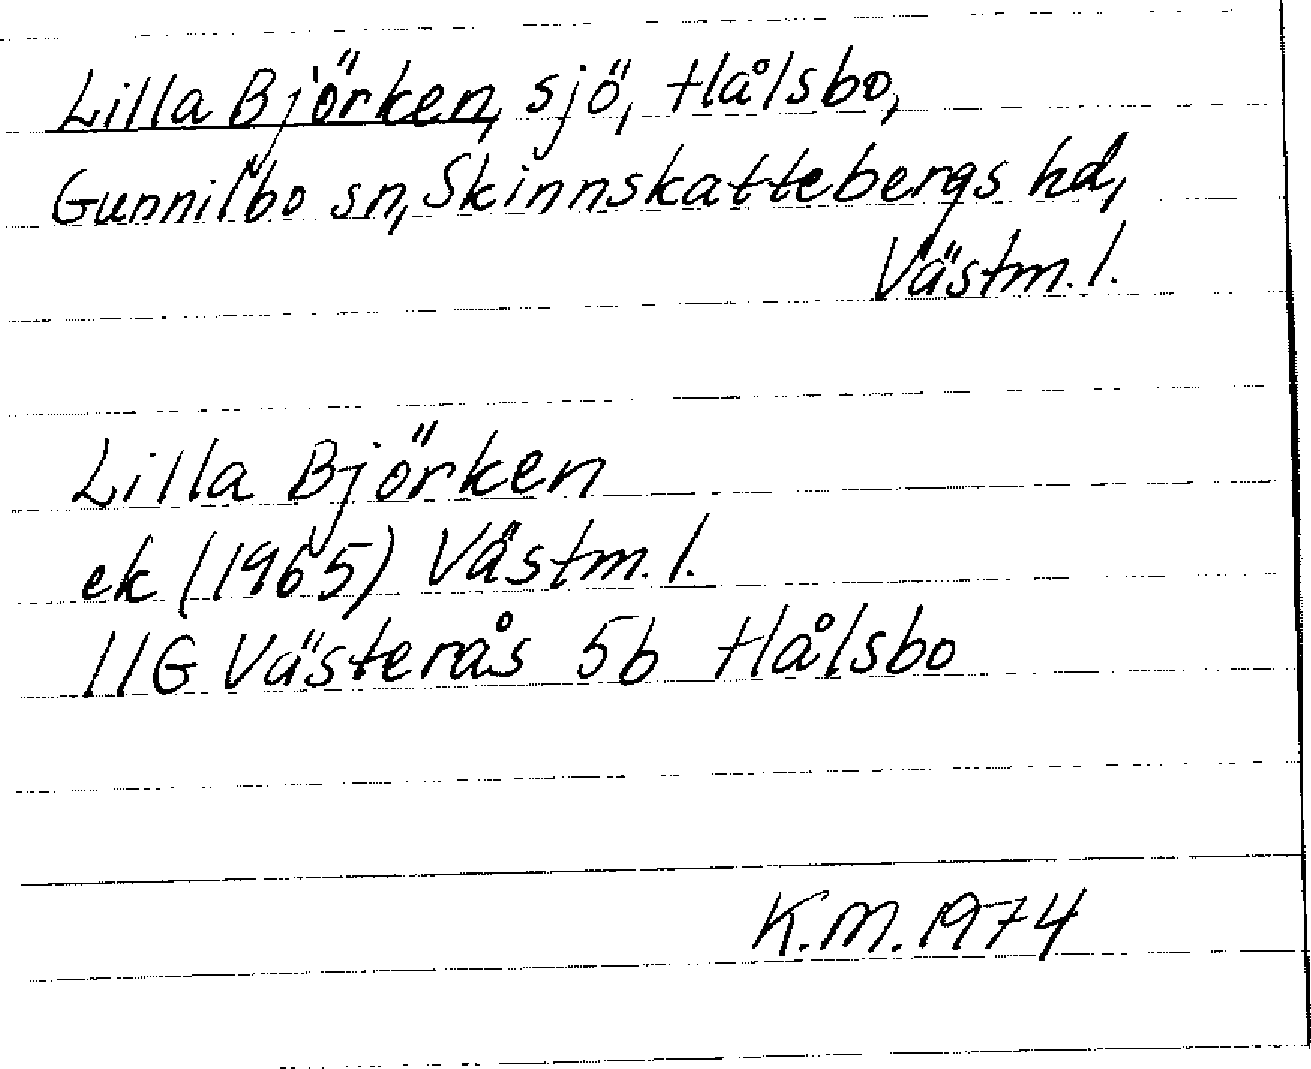 Lilla Björken, sjö, Hålsbo,
Gunnilbo sn, Skinnskattebergs hd,
Västm. l.
Lilla Björken
ek (1965) Västm. l.
11G Västerås 5b Hålsbo
K.M. 1974